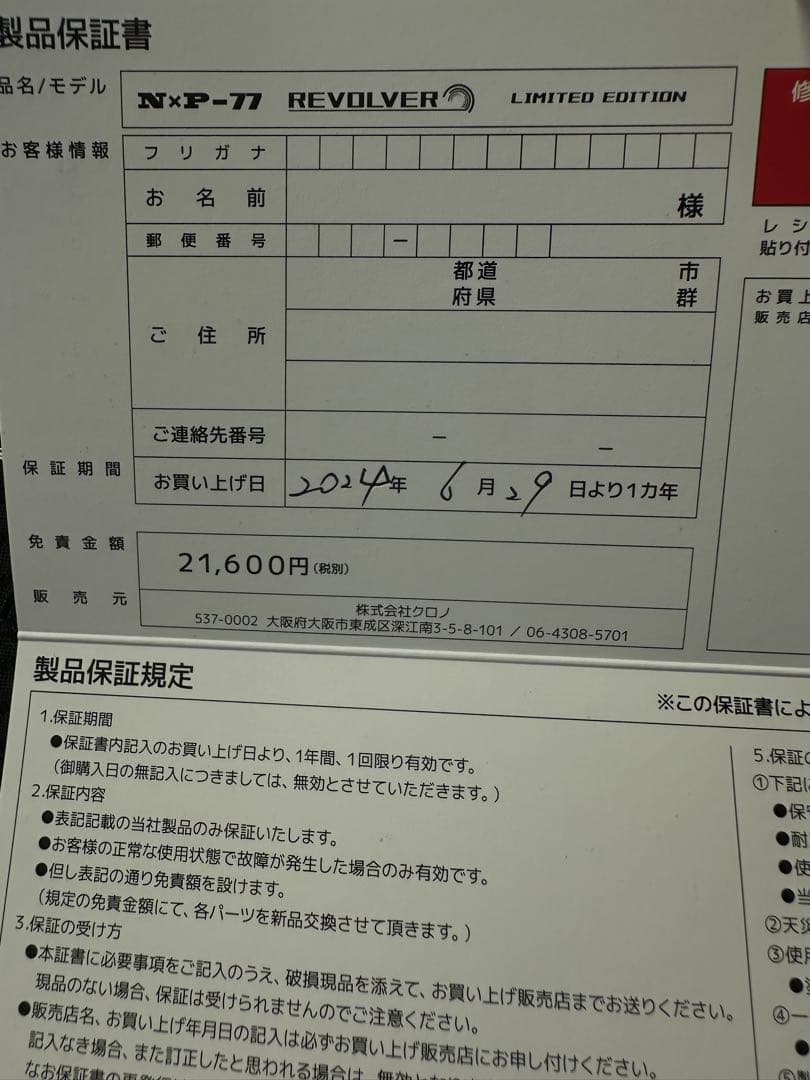 製品保証書
品名/モデル
N×P-77 REVOLVER LIMITED EDITION
修
お客様情報
フリガナ
お名前
様
郵便番号
－
ご住所
都道
府県
市
群
ご連絡先番号
－ －
保証期間
お買い上げ日
2024年 6月29日より1カ年
免責金額
21,600円(税別)
販売元
株式会社クロノ
537-0002 大阪府大阪市東成区深江南3-5-8-101 / 06-4308-5701
レシ
貼り付
お買上
販売店
製品保証規定
※この保証書によ
1.保証期間
●保証書内記入のお買い上げ日より、1年間、1回限り有効です。
(御購入日の無記入につきましては、無効とさせていただきます。)
2.保証内容
●表記記載の当社製品のみ保証いたします。
●お客様の正常な使用状態で故障が発生した場合のみ有効です。
●但し表記の通り免責額を設けます。
(規定の免責金額にて、各パーツを新品交換させて頂きます。)
3.保証の受け方
●本証書に必要事項をご記入のうえ、破損現品を添えて、お買い上げ販売店までお送りください。
現品のない場合、保証は受けられませんのでご注意ください。
●販売店名、お買い上げ年月日の記入は必ずお買い上げ販売店にお申し付けください。
記入なき場合、また訂正したと思われる場合は、無効とな
なお保証書の再発行
5.保証の
①下記に
●保守
●耐
●使
●当
②天災
③使用
④一
⑤製